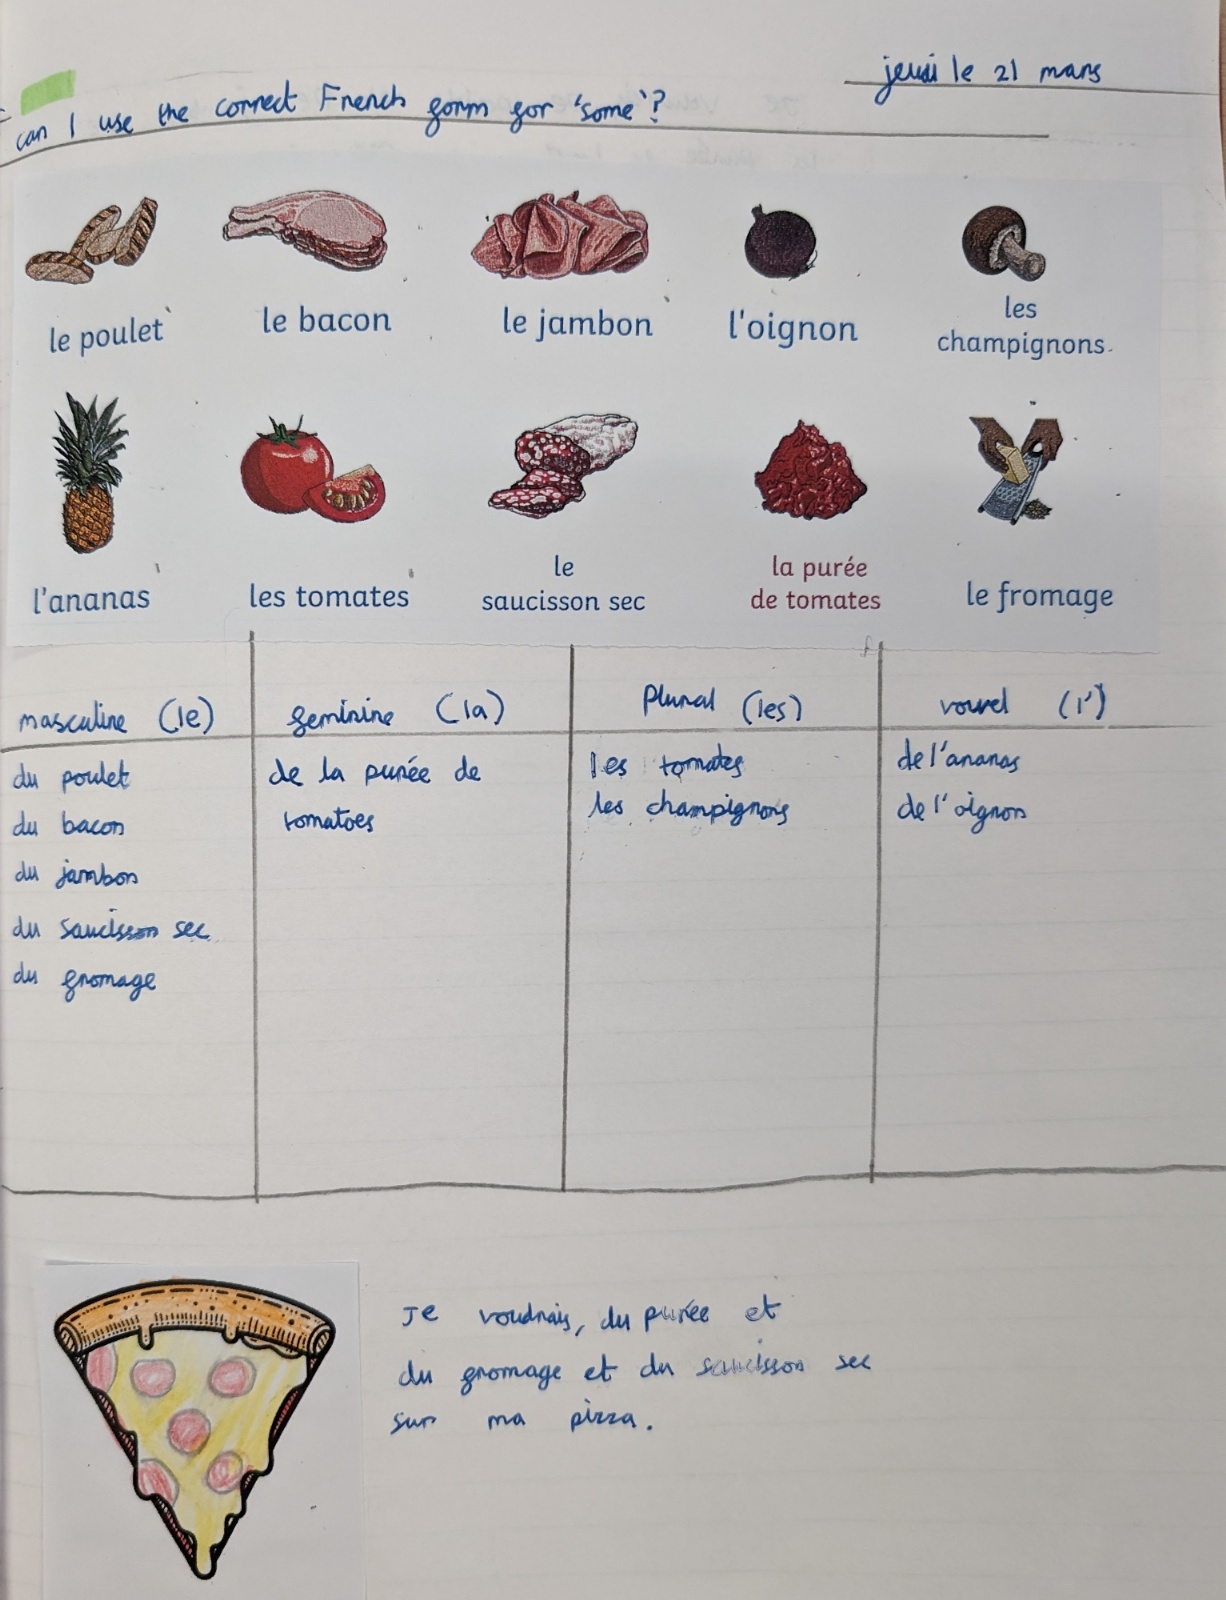 jeudi le 21 mars
can I use the correct French form for 'some'?
le poulet
le bacon
le jambon
l'oignon
les
champignons
l'ananas
les tomates
le
saucisson sec
la purée
de tomates
le fromage
masculine (le)
feminine (la)
Plural (les)
vowel (l')
du poulet
du bacon
du jambon
du saucisson sec
du fromage
de la purée de
tomatoes
les tomates
les champignons
de l'ananas
de l'oignon
Je voudrais, du purée et
du fromage et du saucisson sec
sur ma pizza.